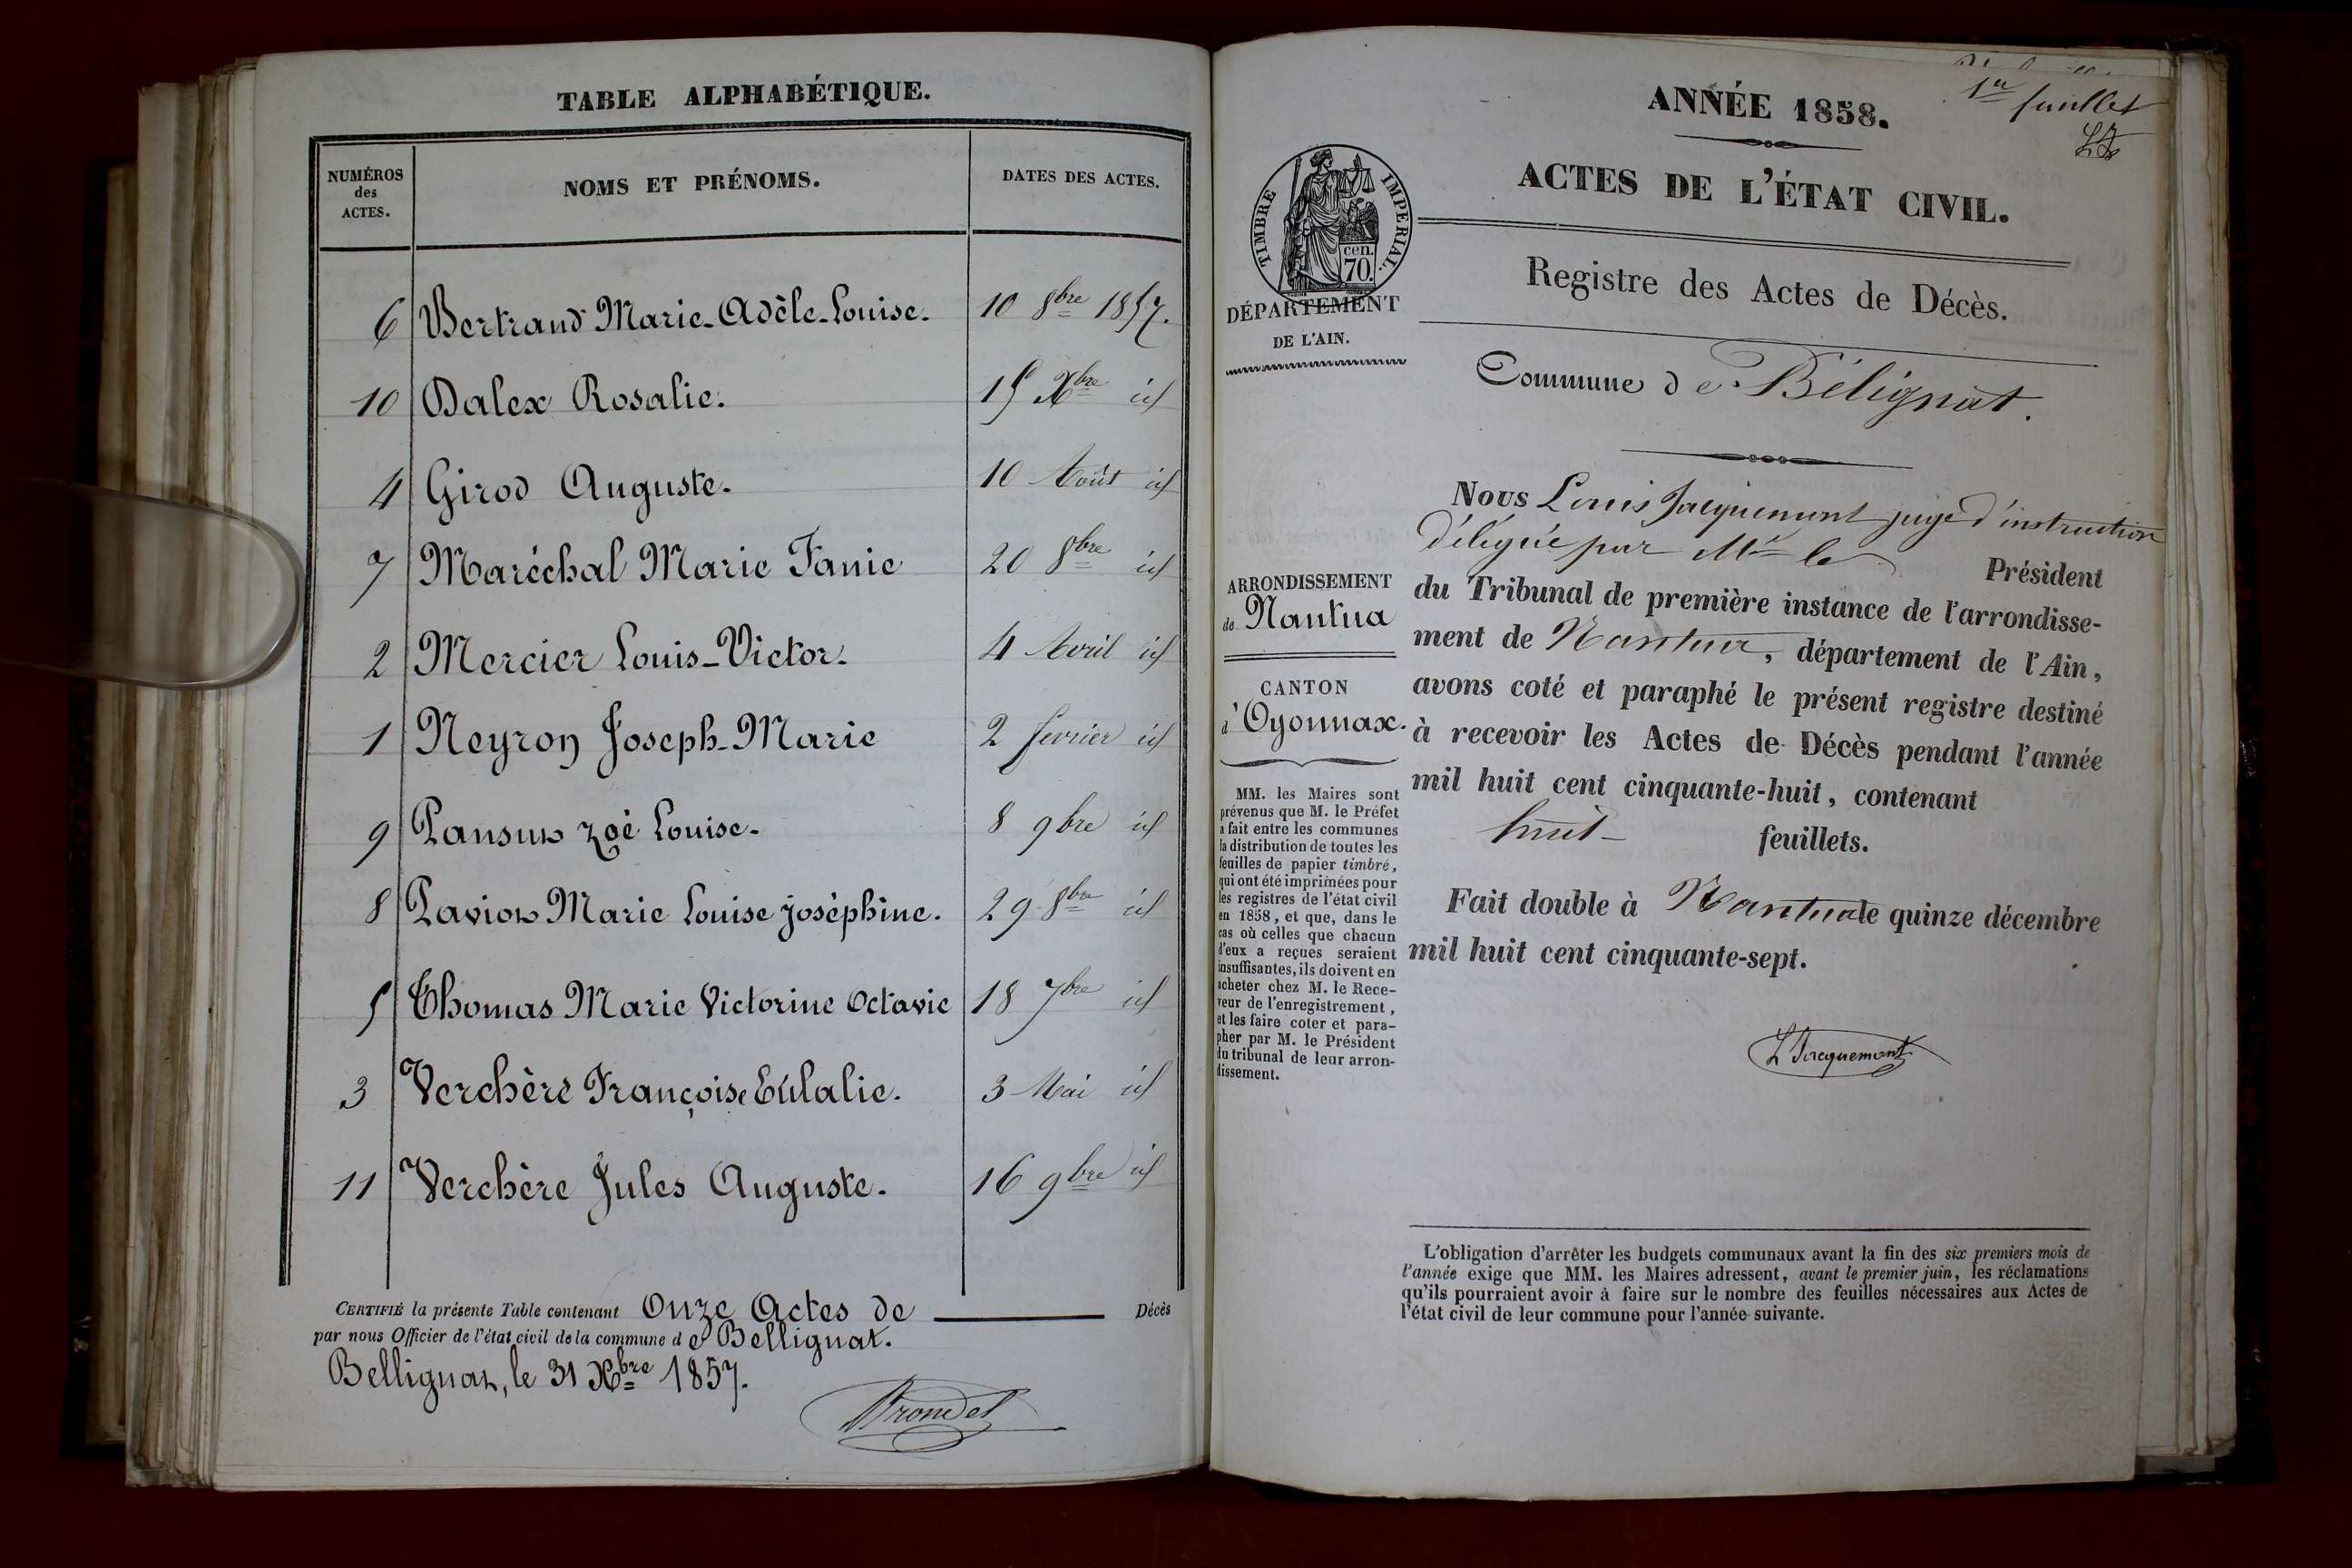 TABLE ALPHABÉTIQUE.
NUMÉROS des ACTES. NOMS ET PRÉNOMS. DATES DES ACTES.
6 Bertrand Marie-Adèle-Louise. 10 8bre 1857.
10 Dalex Rosalie. 15 Xbre id
4 Girod Auguste. 10 Août id
7 Maréchal Marie Fanie 20 8bre id
2 Mercier Louis-Victor. 4 Avril id
1 Neyron Joseph-Marie 2 fevrier id
9 Pansuw zoé Louise. 8 9bre id
8 Pavion Marie Louise joséphine. 29 8bre id
5 Thomas Marie Victorine Octavie 18 7bre id
3 Verchère Françoise Eulalie. 3 Mai id
11 Verchère Jules Auguste. 16 9bre id
CERTIFIÉ la présente Table contenant Onze Actes de Décès
par nous Officier de l'état civil de la commune de Bellignat.
Bellignat, le 31 Xbre 1857.
Brondel
1er feuillet
LJ
ANNÉE 1858.
ACTES DE L'ÉTAT CIVIL.
TIMBRE IMPERIAL.
cen.
70.
DÉPARTEMENT
DE L'AIN.
Registre des Actes de Décès.
Commune de Bélignat.
ARRONDISSEMENT
de Nantua
CANTON
d'Oyonnax.
MM. les Maires sont
prévenus que M. le Préfet
a fait entre les communes
la distribution de toutes les
feuilles de papier timbré,
qui ont été imprimées pour
les registres de l'état civil
en 1858, et que, dans le
cas où celles que chacun
d'eux a reçues seraient
insuffisantes, ils doivent en
acheter chez M. le Rece-
veur de l'enregistrement,
et les faire coter et para-
pher par M. le Président
du tribunal de leur arron-
dissement.
Nous Louis Jacquemont juge d'instruction
délégué par Mr le Président
du Tribunal de première instance de l'arrondisse-
ment de Nantua, département de l'Ain,
avons coté et paraphé le présent registre destiné
à recevoir les Actes de Décès pendant l'année
mil huit cent cinquante-huit, contenant
huit feuillets.
Fait double à Nantua le quinze décembre
mil huit cent cinquante-sept.
L Jacquemont
L'obligation d'arrêter les budgets communaux avant la fin des six premiers mois de
l'année exige que MM. les Maires adressent, avant le premier juin, les réclamations
qu'ils pourraient avoir à faire sur le nombre des feuilles nécessaires aux Actes de
l'état civil de leur commune pour l'année suivante.